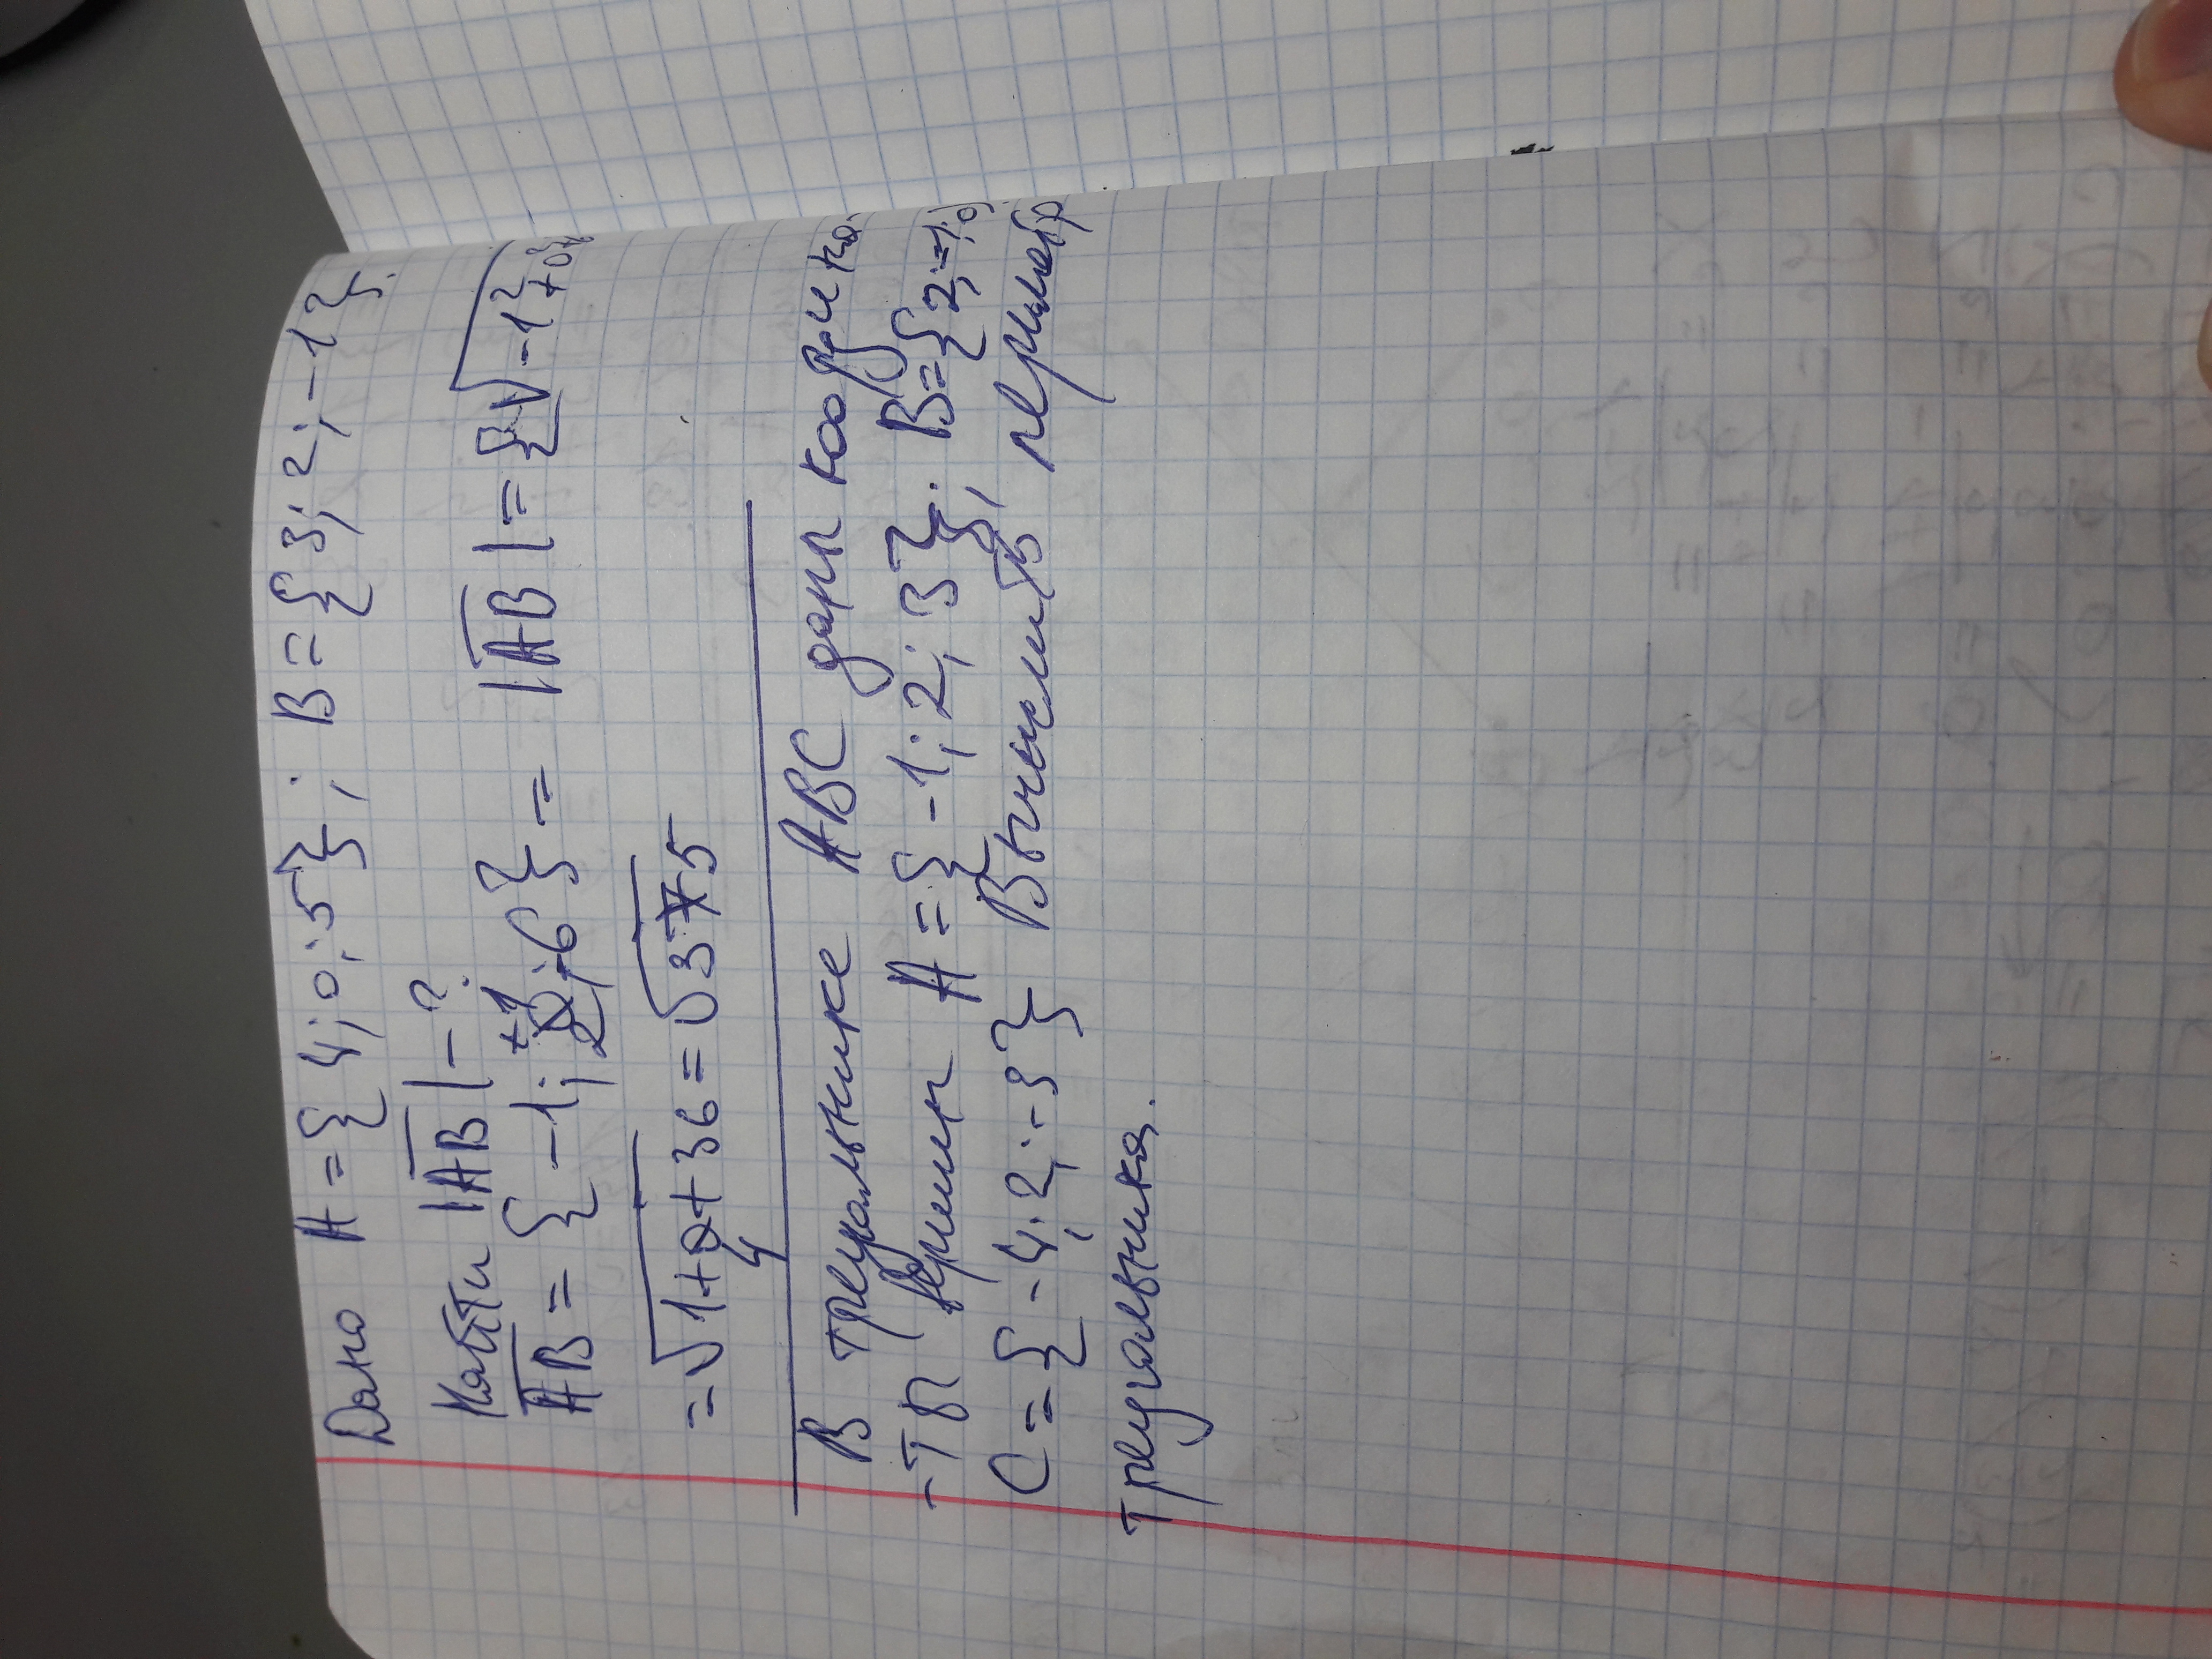 Дано A={4;0;5}; B={3;2;-1}.
Найти |AB|-?
AB={-1;2;6}= |AB|={√-1²+0²
=√1+4+36=√35
В треугольнике ABC даны коорди на-
-ты вершин A={-1;2;3}. B={2;-1;0}
C={-4;2;-3} Вычислить, периметр
треугольника.